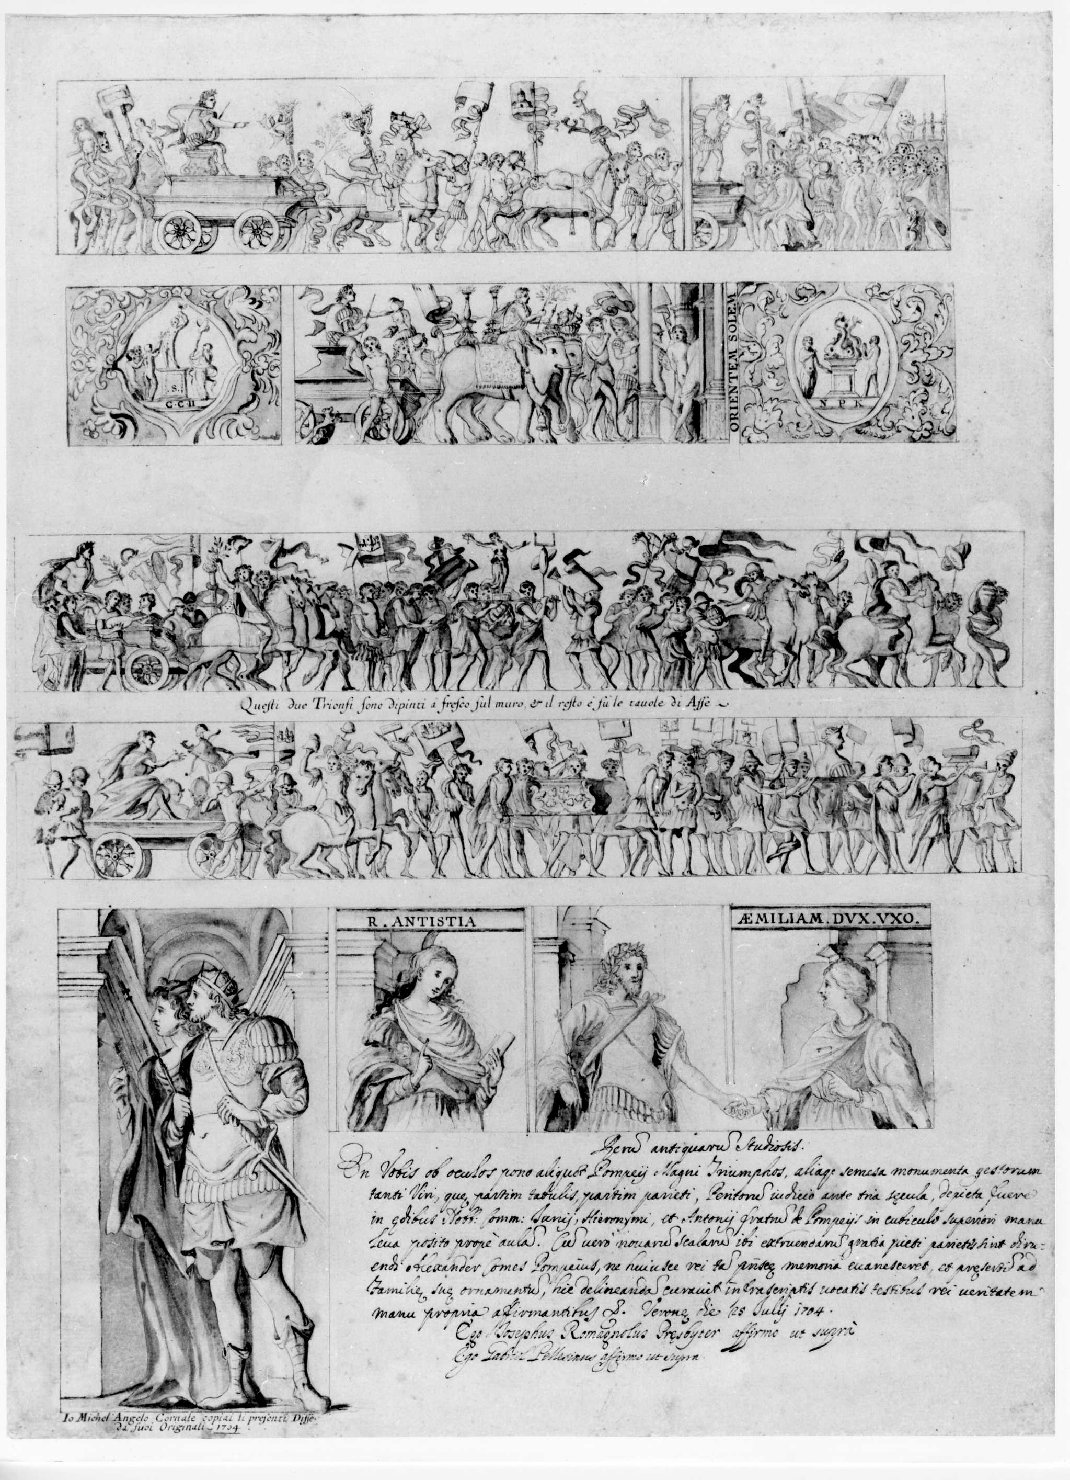 S.
C C H
ORIENTEM SOLEM
N P K
Questi due Trionfi sono dipinti a fresco sul muro, & il resto è sù le tavole di Asse
R. ANTISTIA
ÆMILIAM. DVX. VXO.
Rerū antiquarū Studiosis.
En Vobis ob oculos pono aliquot Pompeij Magni Triumphos, aliaq; semesa monumenta gestorum
tanti Viri, quę, partim tabulis, partim parieti, Peritorū iudicio ante tria sęcula, depicta fuere
in ędibus Nobb: Comm: Iurij, Hieronymi, et Antonij fratrū de Pompeijs in cubiculo superiori manu
leua posito propè aulā. Cū verò novarū Scalarū ibi extruendarū gratia picti parietes sint diru=
endi Alexander Comes Pompeius, ne huiusce rei tā memoria evanesceret, et ad
Familię suę ornamentū, hic delineandā curavit infrascriptis vocatis testibus rei veritatem
manu propria affirmantibus Veronę die 28 Julij 1704.
Ego Josephus Romagnolus Pręsbyter affirmo ut suprà
Ego Pellesinus affirmo ut supra
Io Michel Angelo Cornale copiai li presenti Disse.
da suoi Originali 1704